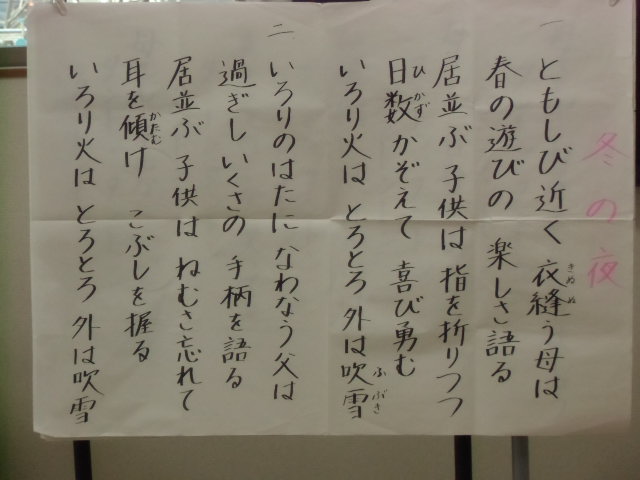 冬の夜
一 ともしび近く 衣縫う母は
春の遊びの 楽しさ語る
居並ぶ 子供は 指を折りつつ
日数かぞえて 喜び勇む
いろり火は とろとろ 外は吹雪
二 いろりのはたに なわなう父は
過ぎし いくさの 手柄を語る
居並ぶ 子供は ねむさ忘れて
耳を傾け こぶしを握る
いろり火は とろとろ 外は吹雪